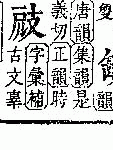 雙
唐韻集韻是
義切正韻時
字彙補
古文辜